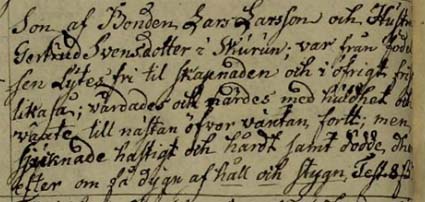 Son af Bonden Lars Larsson och Hustru
Gertrud Svensdotter i Skurun; var från föde
sen Lytes fri til skapnaden och i öfrigt fri
likaså; vårdades och närdes med huldhet och
växte till nästan öfver väntan fortt; men
Sjuknade hastigt och hårdt samt dödde
efter om få dygn af håll och stygn,